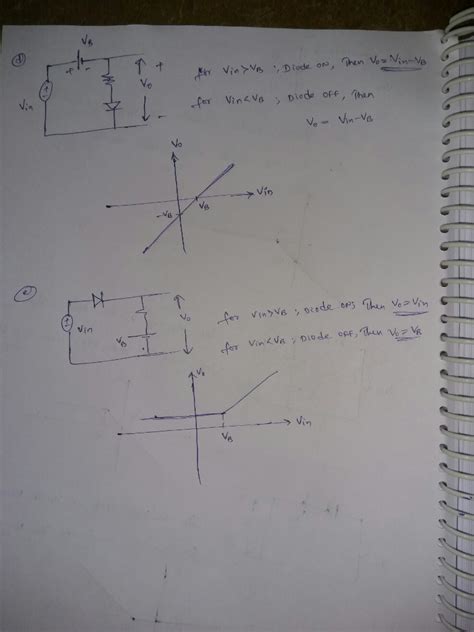 d)
V_B
+ - +
V_in
V_o
for V_in > V_B ; Diode ON, Then V_o = V_in - V_B
for V_in < V_B ; Diode OFF, Then
V_o = V_in - V_B
V_o
V_in
V_B
-V_B
e)
V_in
V_B
V_o
for V_in > V_B ; Diode ON, Then V_o = V_in
for V_in < V_B ; Diode OFF, Then V_o = V_B
V_o
V_in
V_B